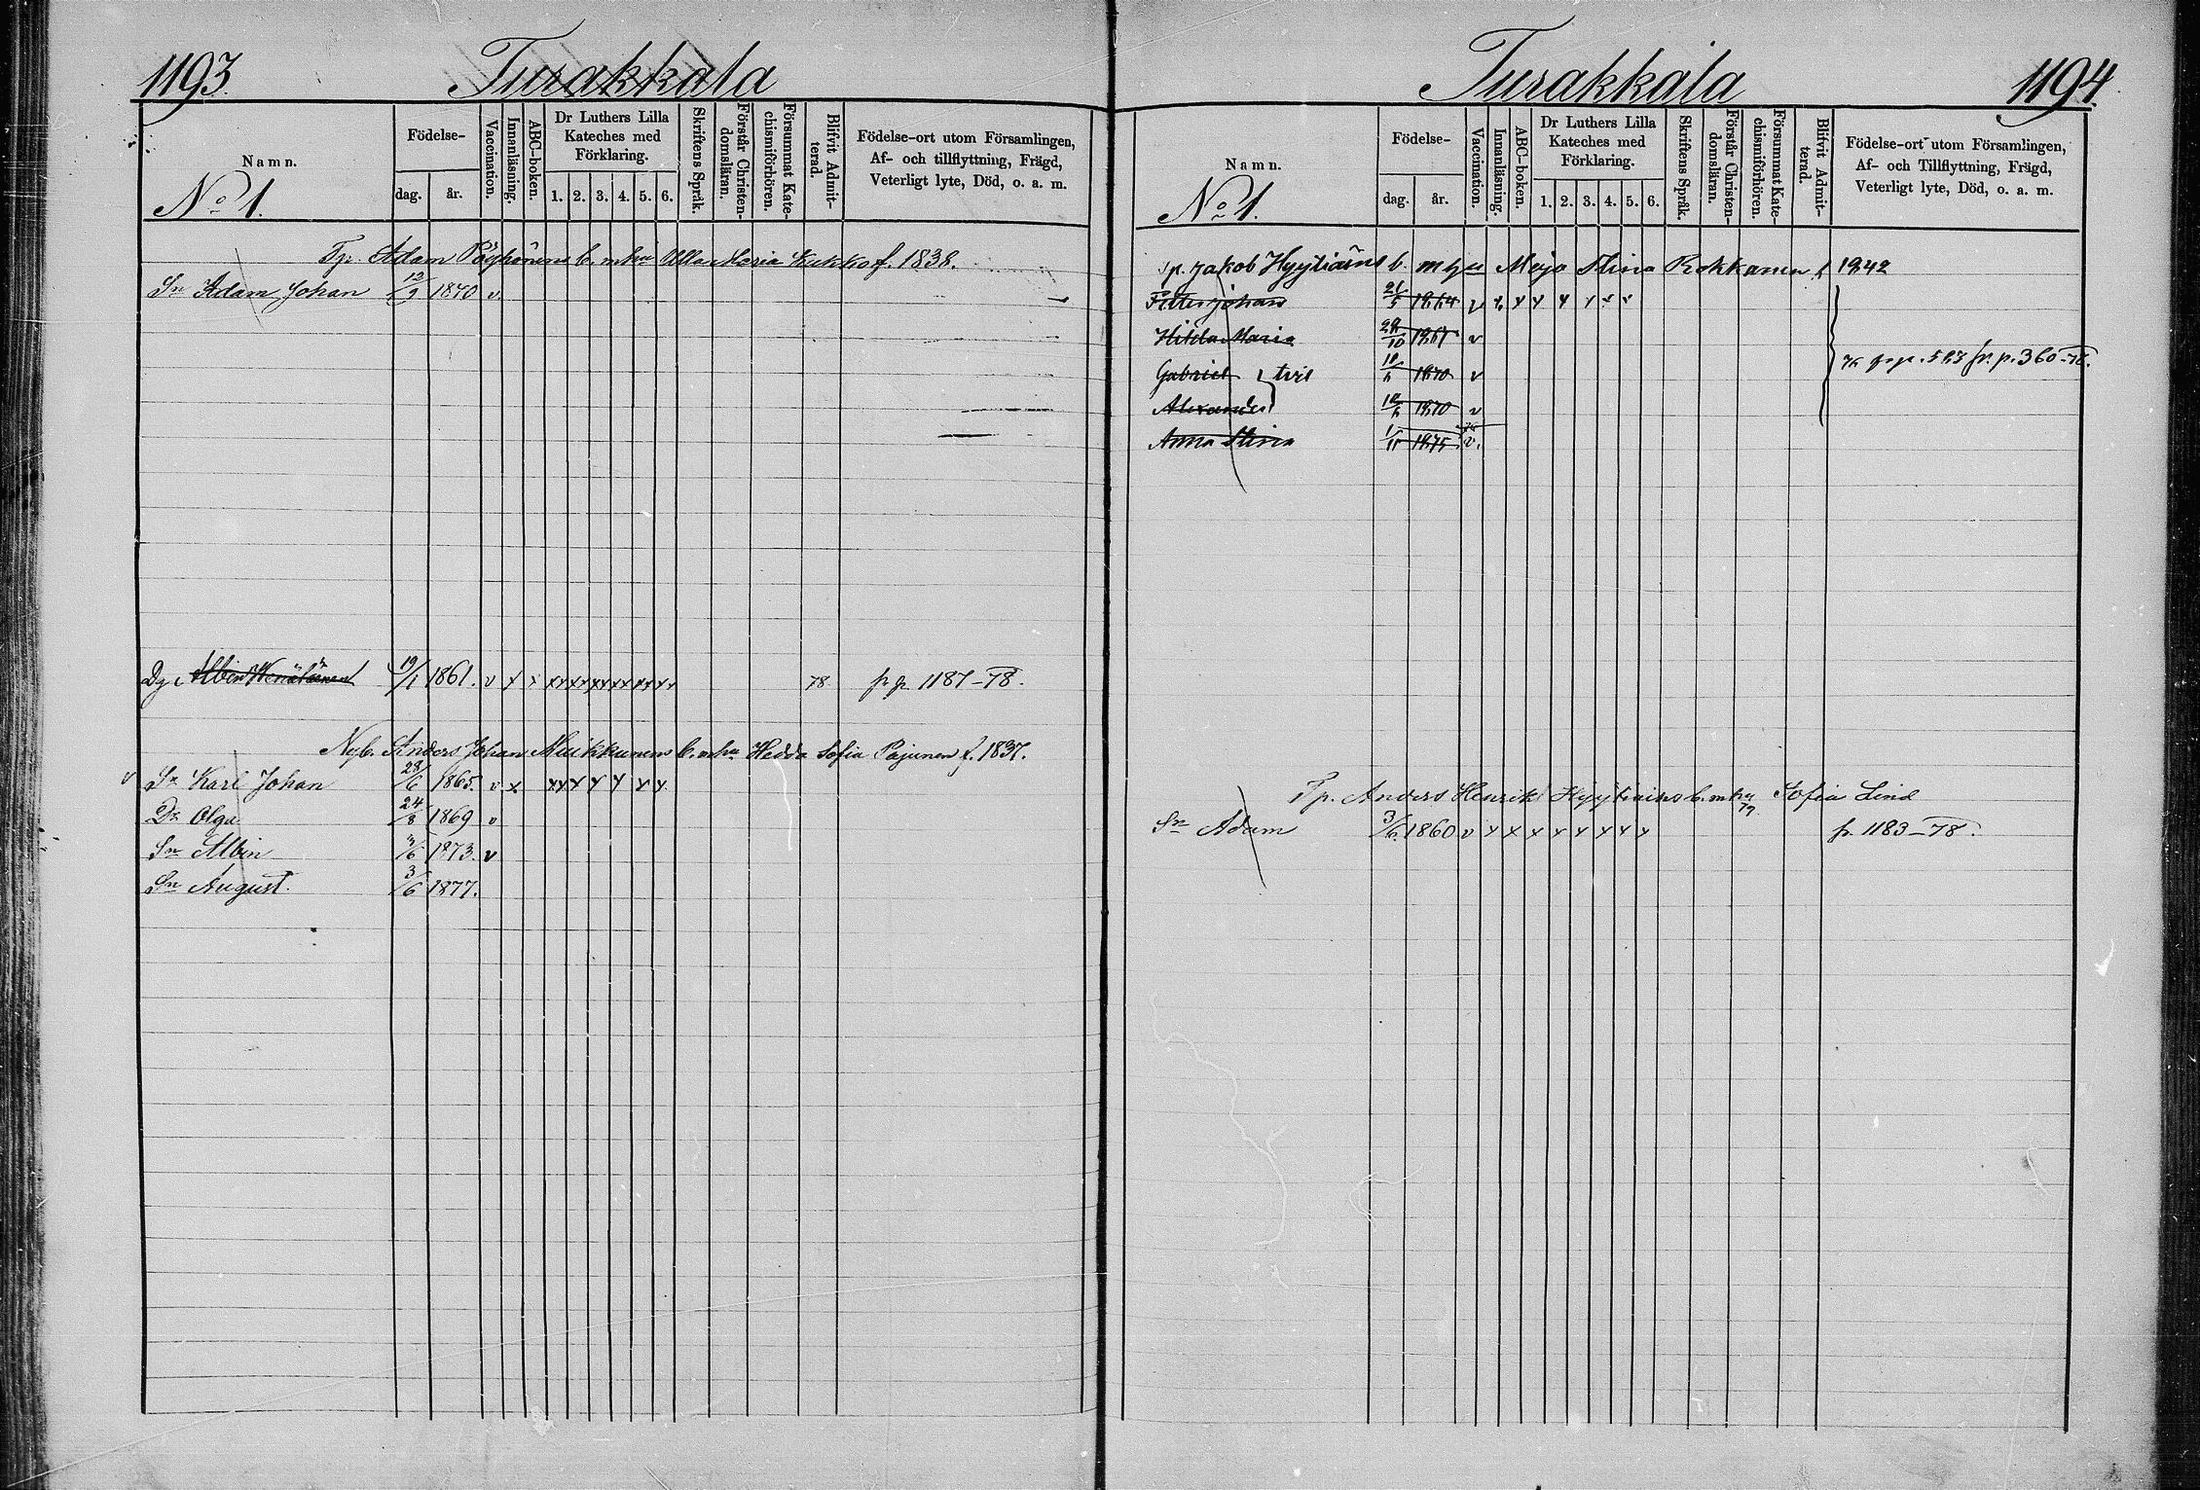 1193
Turakkala
Namn.
No 1.
Födelse-
dag.
år.
Vaccination.
Innanläsning.
ABC-boken.
Dr Luthers Lilla
Kateches med
Förklaring.
1. 2. 3. 4. 5. 6.
Skriftens Språk.
Förstår Christen-
domsläran.
Försummat Kate-
chismiförhören.
Blifvit Admit-
terad.
Födelse-ort utom Församlingen,
Af- och tillflyttning, Frägd,
Veterligt lyte, Död, o. a. m.
Tp. Adam b. mhu Ulla Maria Kukko f. 1838.
Sn Adam Johan 12/9 1870 v.
Dg Albin Wenäläinen 19/1 1861. v x x xx xx xx xx xx xx 78. fr p 1187-78.
Nyb. Anders Johan Muikkunens b. mhu Hedda Sofia Pajunen f. 1837.
v Sn Karl Johan 28/6 1865. v x xx x x x x x
Dr Olga 24/8 1869 v
Sn Albin 1873. v
Sn August. 3/6 1877.
1194
Turakkala
Namn.
No 1.
Födelse-
dag.
år.
Vaccination.
Innanläsning.
ABC-boken.
Dr Luthers Lilla
Kateches med
Förklaring.
1. 2. 3. 4. 5. 6.
Skriftens Språk.
Förstår Christen-
domsläran.
Försummat Kate-
chismiförhören.
Blifvit Admit-
terad.
Födelse-ort utom Församlingen,
Af- och Tillflyttning, Frägd,
Veterligt lyte, Död, o. a. m.
Jakob Hyytiäins b. mhu Maja Stina Rokkanen f 1842
Petter Johan 21/5 1864 v x x x x x x x
Hilda Maria 1867 v
Gabriel } tvil 1870 v
Alexander 1870 v
fr. p. 360-78.
Anna Stina 1875. v.
Tp. Anders Henrik Hyytiäins b. mhu Sofia Lind
79
Sn Adam 3/6 1860 v x x x x x x x x
fr 1183-78.